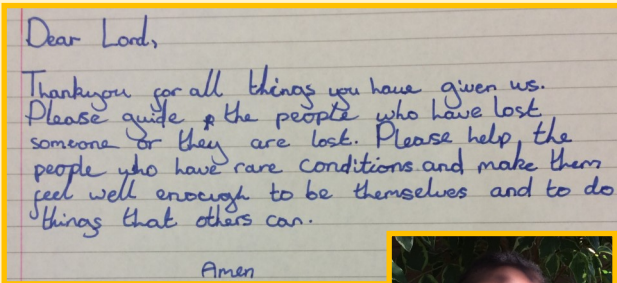 Dear Lord,
Thankyou for all things you have given us.
Please guide the people who have lost
someone or they are lost. Please help the
people who have rare conditions and make them
feel well enough to be themselves and to do
things that others can.
Amen